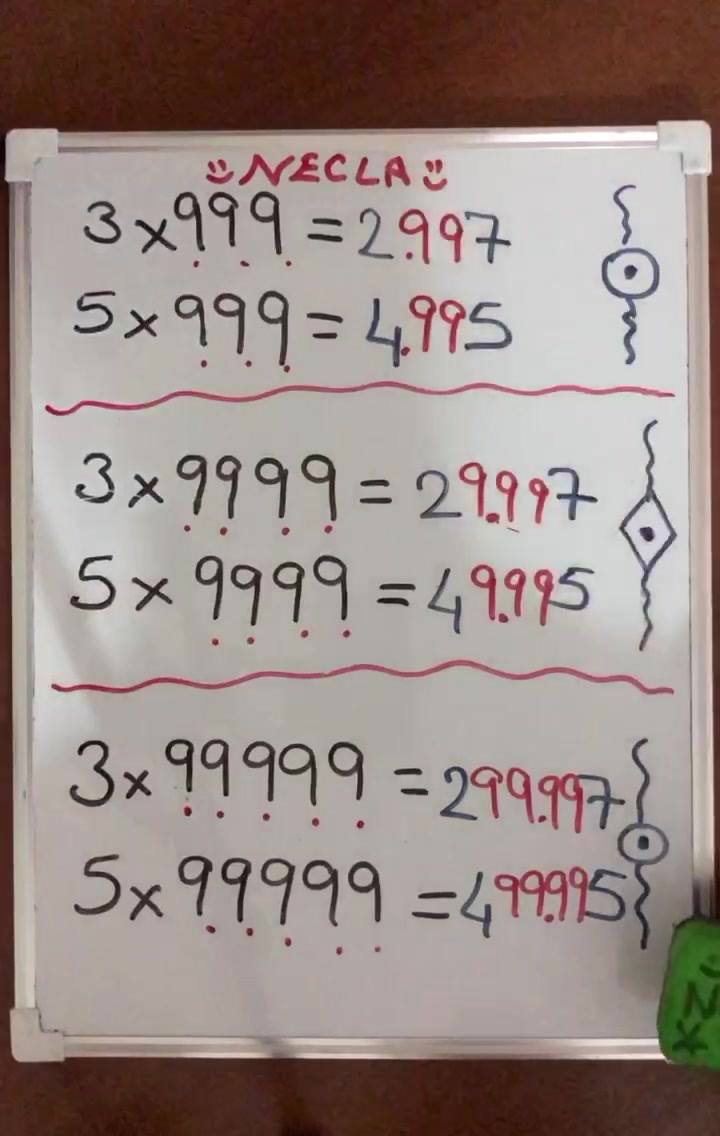 NECLA
3×999=2.997
5×999=4.995
3×9999=29.997
5×9999=49.995
3×99999=299.997
5×99999=499.995